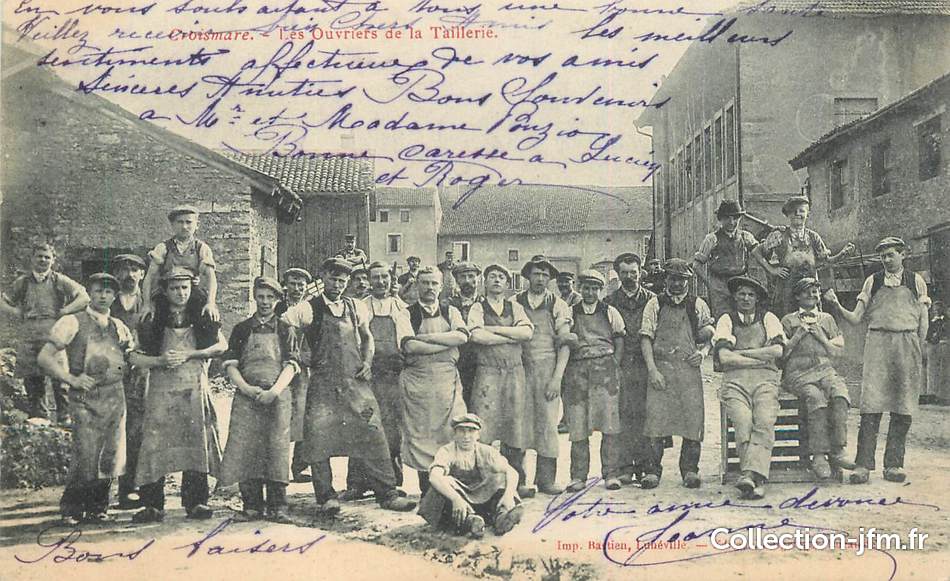 En vous souhaitant à tous une bonne santé
Veillez recevoir mes chers Amis les meilleurs
Croismare. - Les Ouvriers de la Taillerie.
sentiments affectueux de vos amis
Sincères Amitiés Bons Souvenirs
a Mr et Madame Ponzio
Bonne caresse a Lucien
et Roger
Votre amie dévouée
Jeanne
Bons baisers
Imp. Bastien, Lunéville. -
Collection-jfm.fr